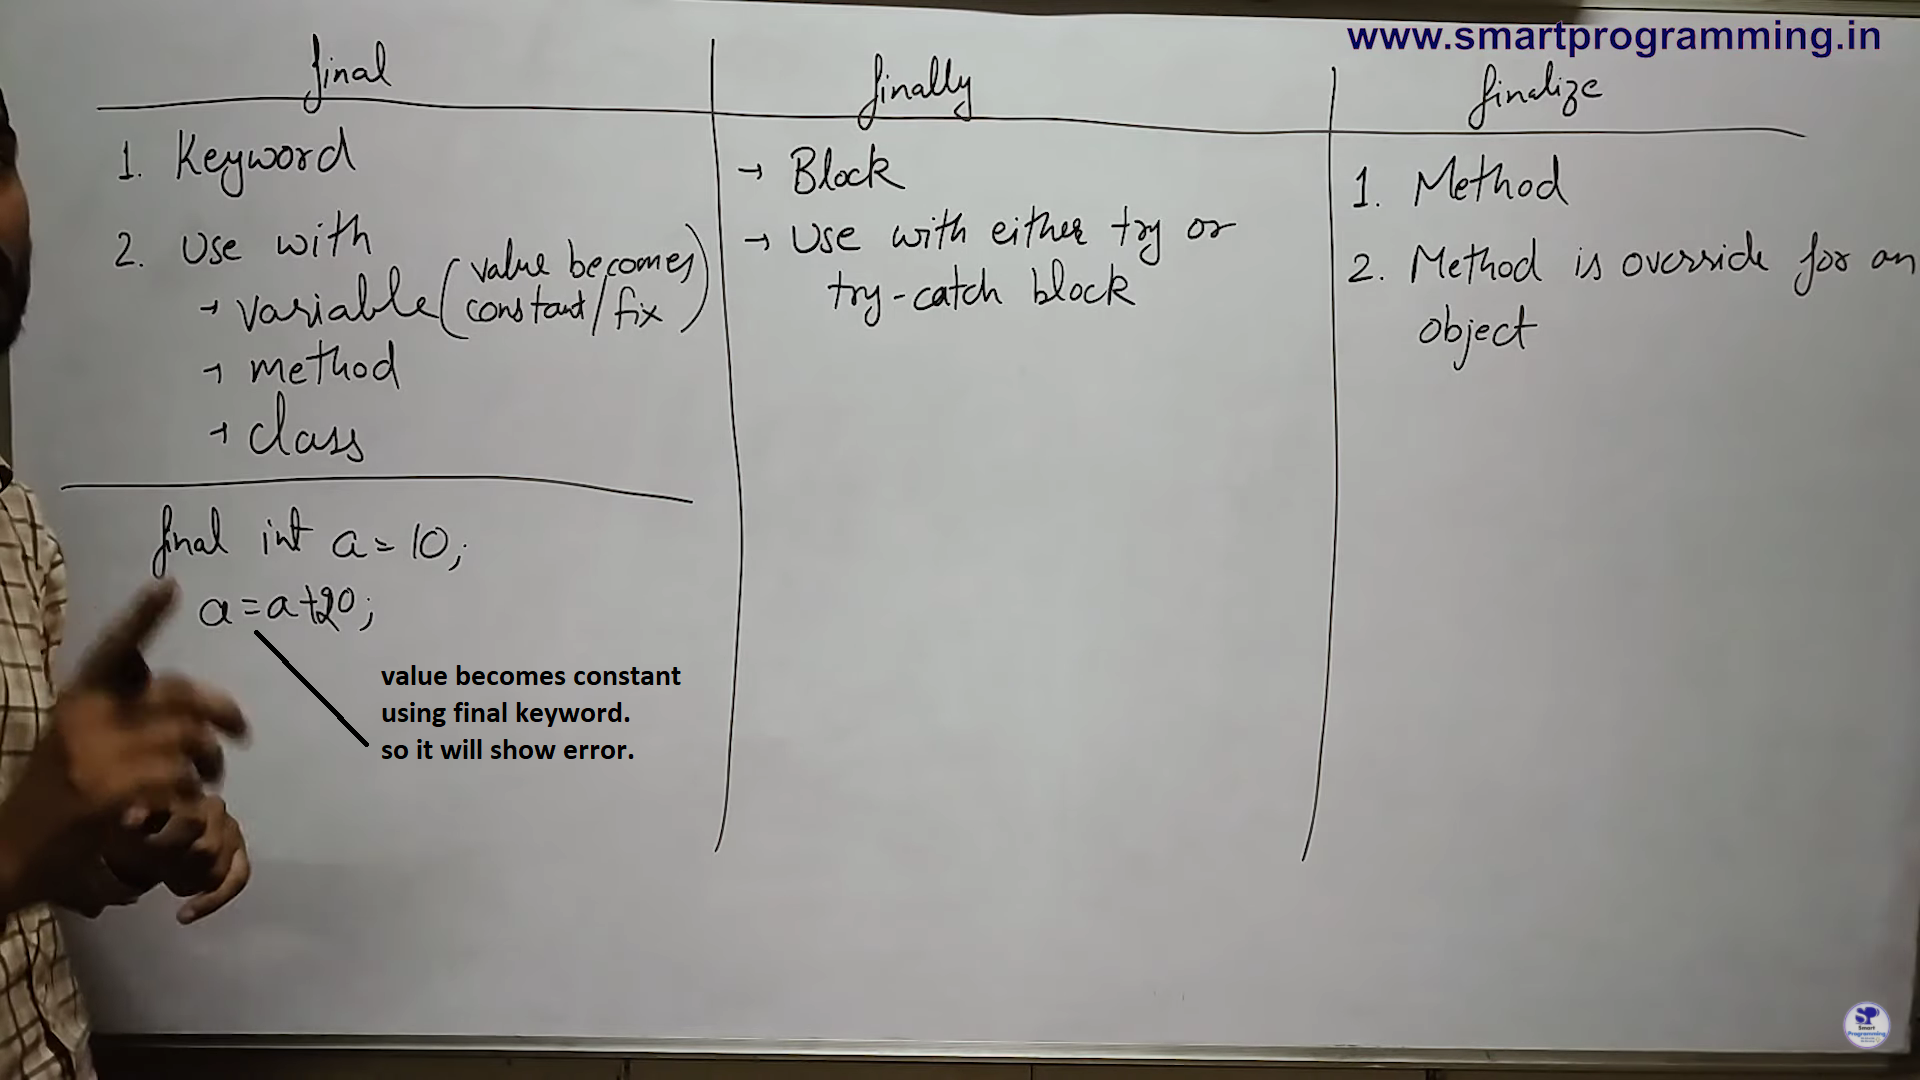 www.smartprogramming.in
final
1. Keyword
2. Use with
→ variable (value becomes
constant/fix)
→ method
→ class
final int a = 10;
a = a+20;
value becomes constant
using final keyword.
so it will show error.
finally
→ Block
→ Use with either try or
try-catch block
finalize
1. Method
2. Method is override for an
object
SP
Smart
Programming